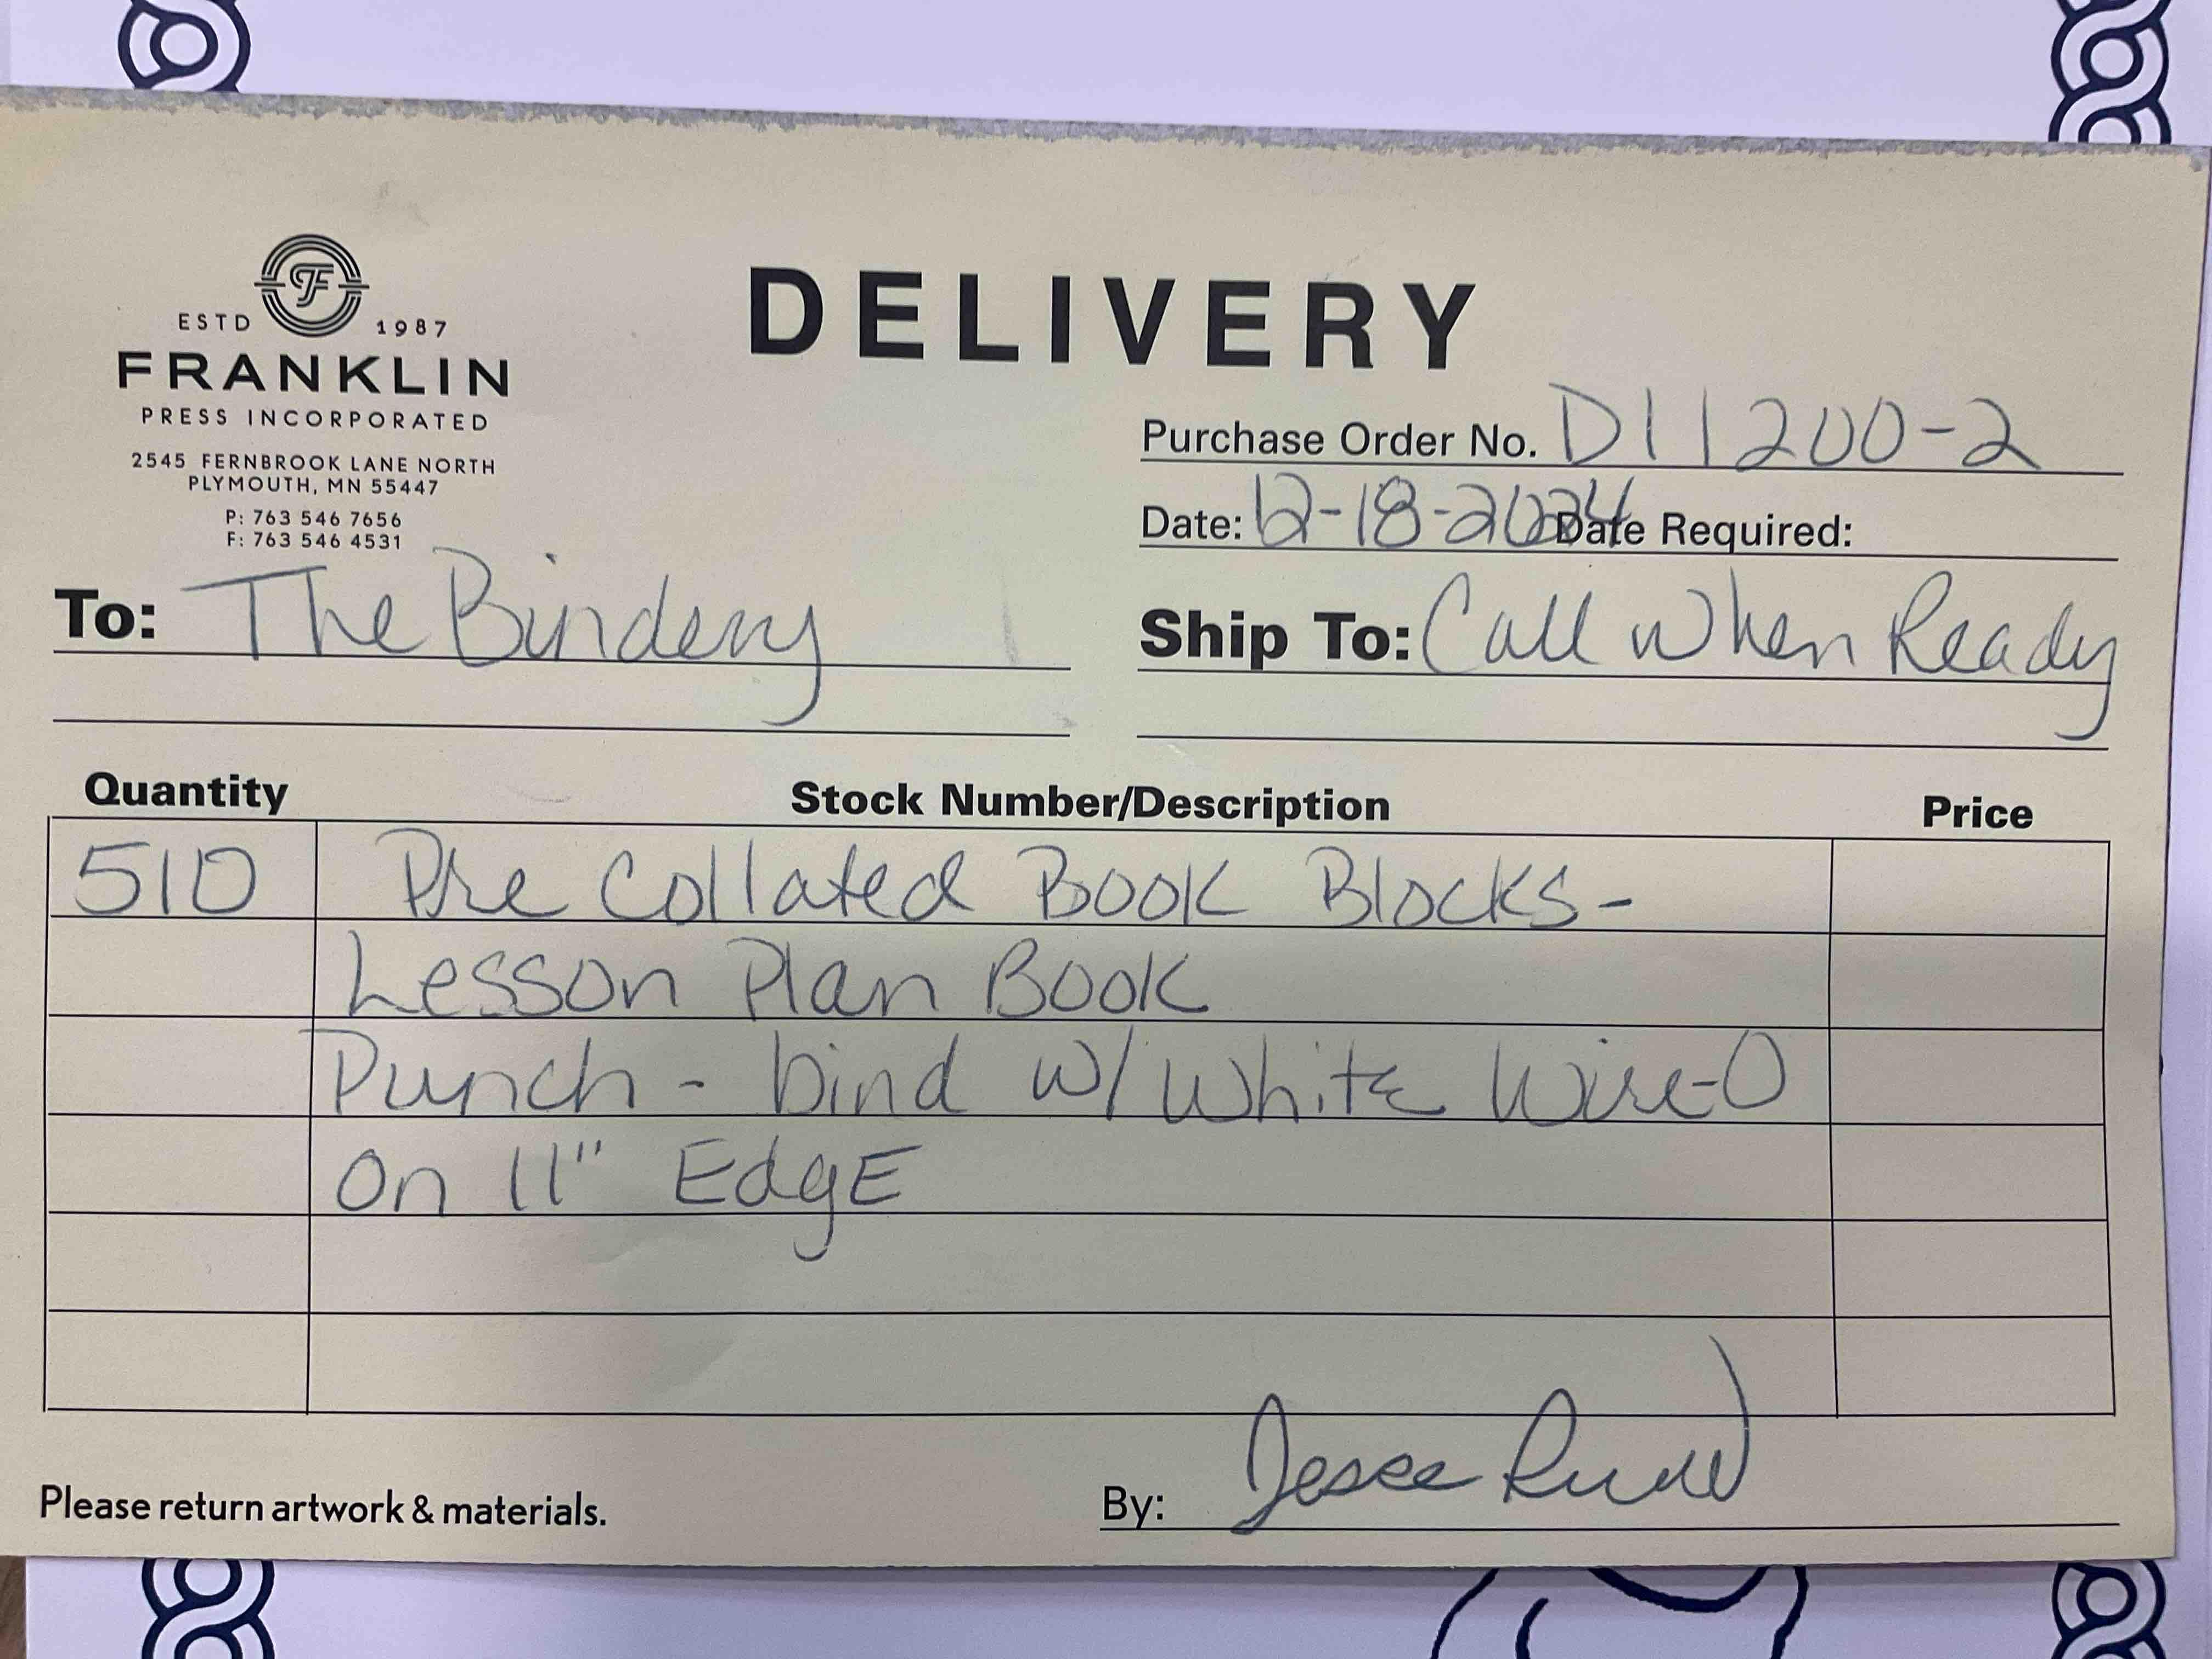 ESTD 1987
FRANKLIN
PRESS INCORPORATED
2545 FERNBROOK LANE NORTH
PLYMOUTH, MN 55447
P: 763 546 7656
F: 763 546 4531
DELIVERY
Purchase Order No. D11200-2
Date: 12-18-2024 Date Required:
To: The Bindery
Ship To: Call When Ready
Quantity Stock Number/Description Price
510 Pre Collated Book Blocks-
Lesson Plan Book
Punch - bind w/ White Wire-O
on 11" EdgE
Please return artwork & materials.
By: Jesse